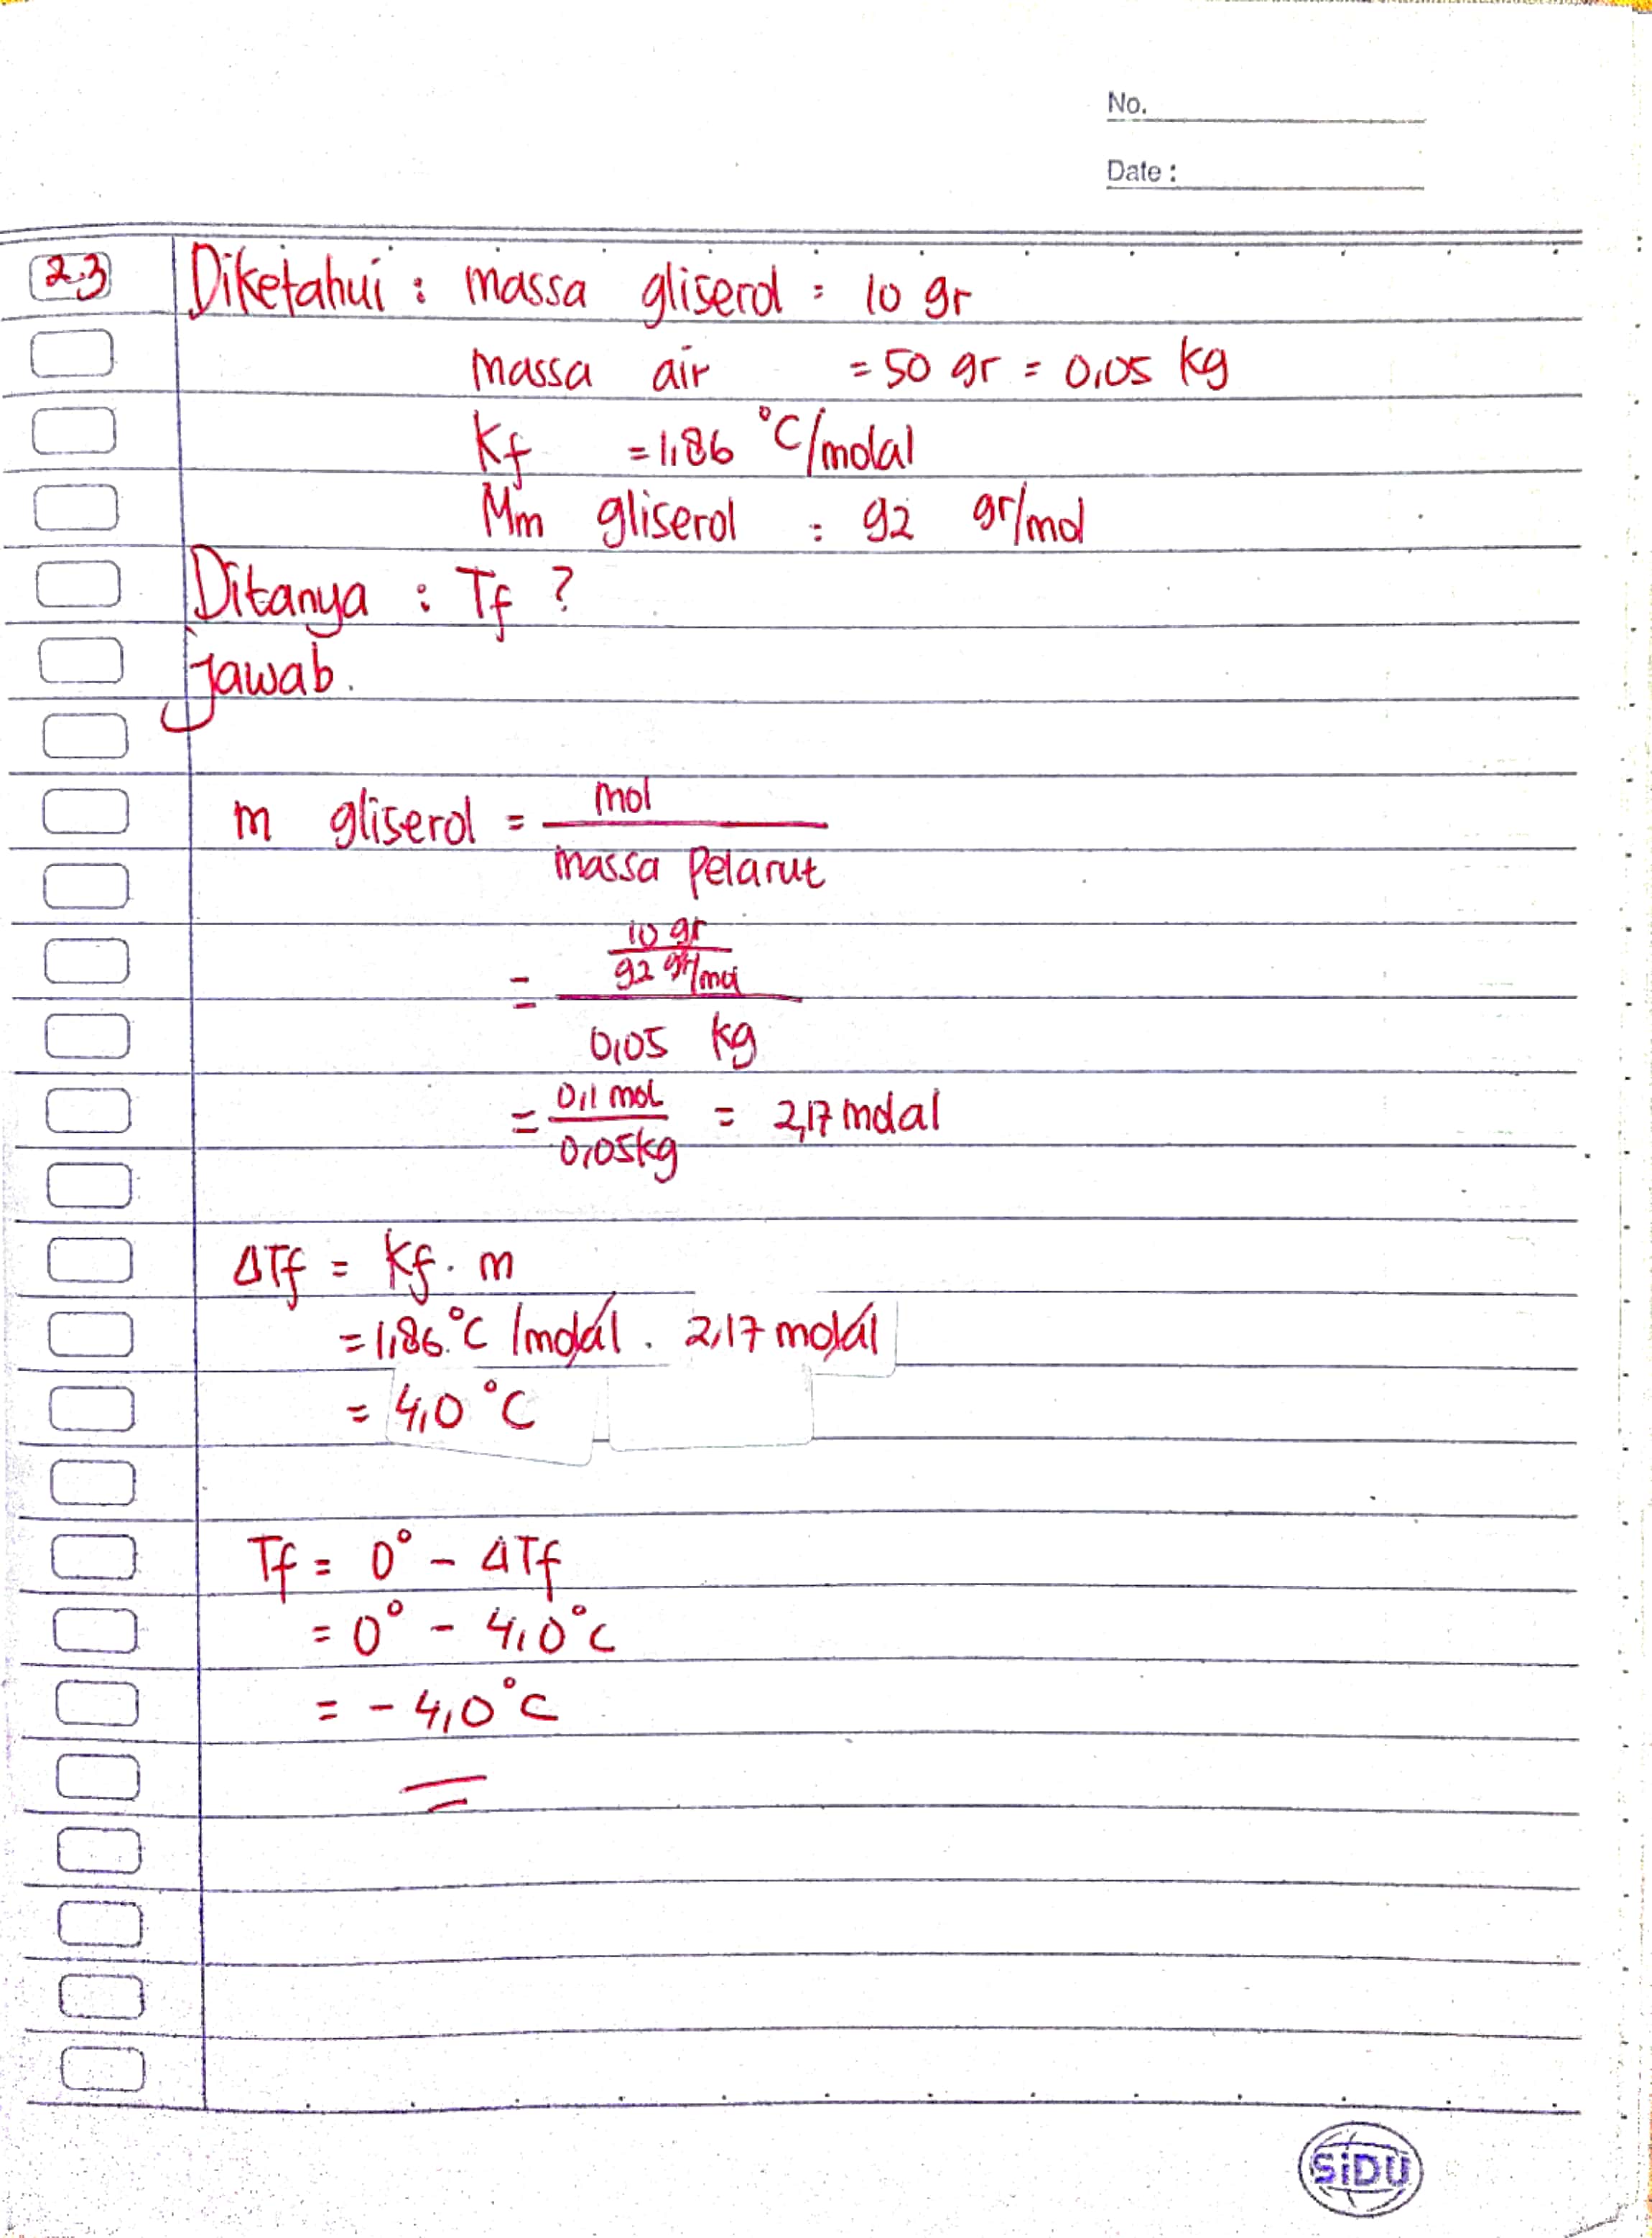 No.
Date :
2.3 Diketahui : massa gliserol : 10 gr
massa air = 50 gr = 0,05 kg
Kf = 1,86 °C/molal
Mm gliserol : 92 gr/mol
Ditanya : Tf ?
Jawab.
m gliserol = mol
massa pelarut
= 10 gr
92 gr/mol
0,05 kg
= 0,1 mol = 2,17 molal
0,05 kg
ΔTf = Kf . m
= 1,86 °C /molal . 2,17 molal
= 4,0 °C
Tf = 0° - ΔTf
= 0° - 4,0°C
= - 4,0°C
SiDU